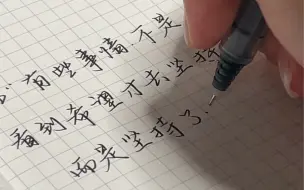 有些事情,不是
看到希望才去坚持
而是坚持了.